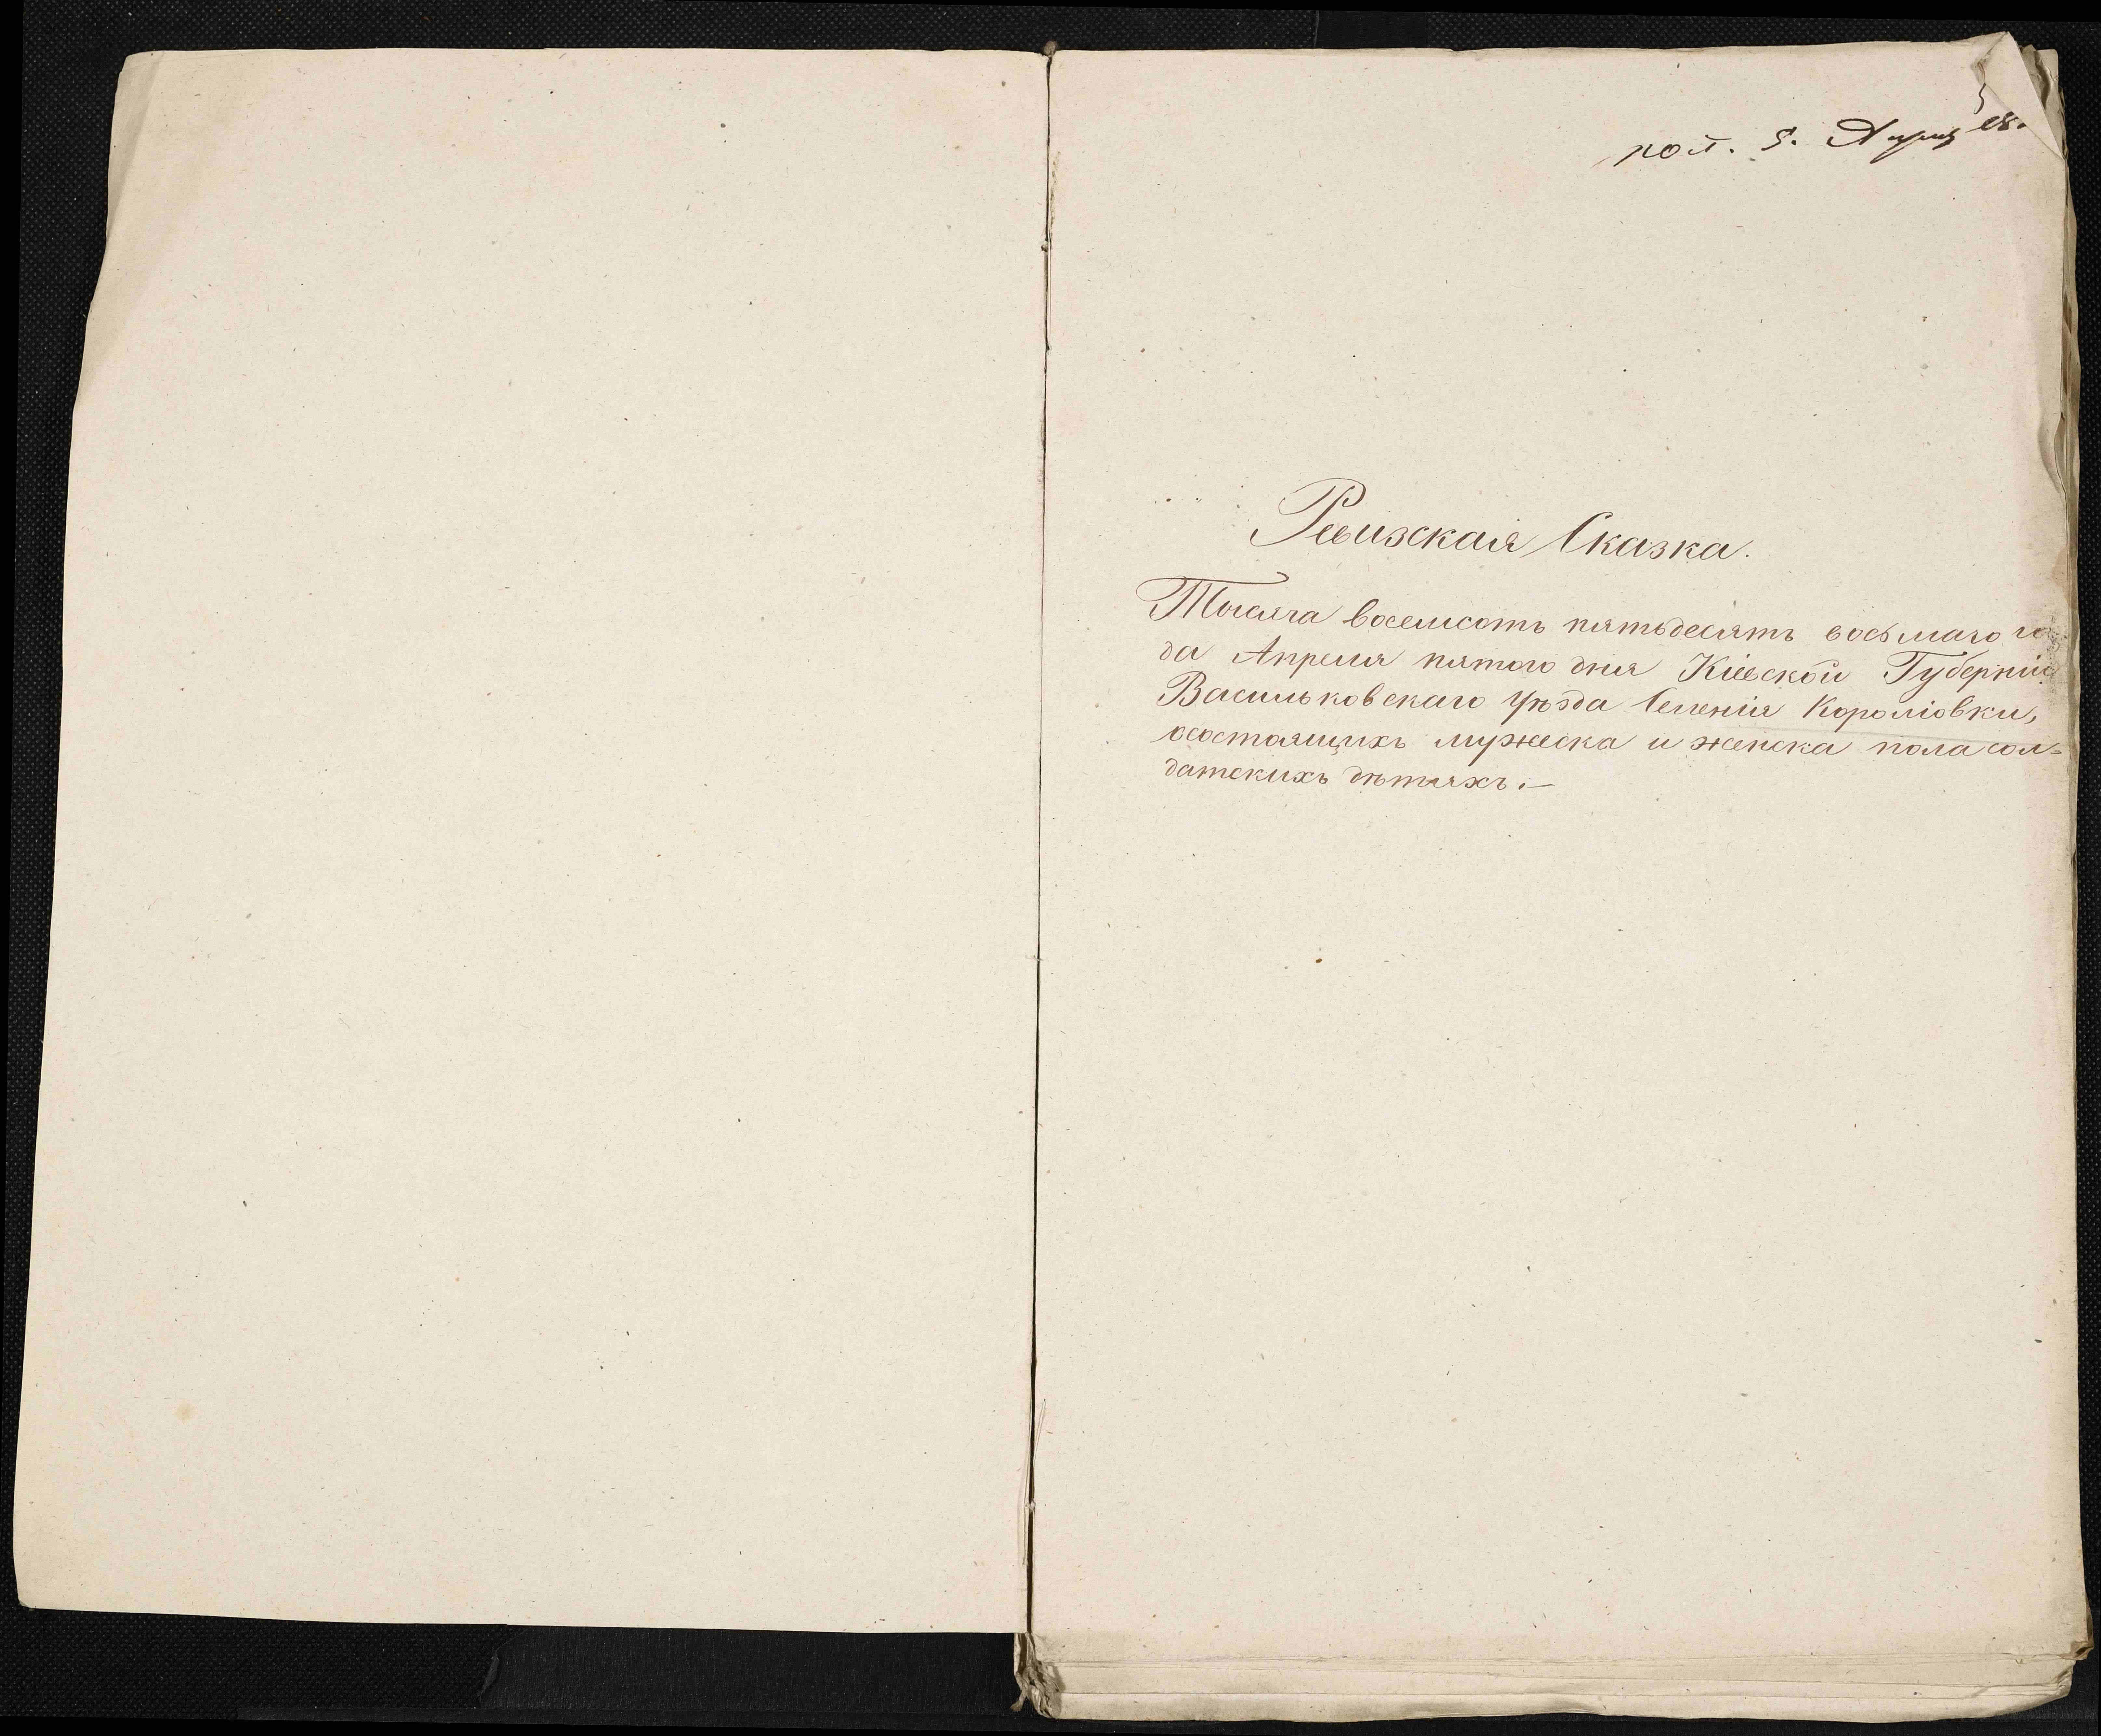 пол. 5. Апреля 58.
Ревизская Сказка.
Тысяча восемсотъ пятьдесятъ восьмаго го
да Апреля пятого дня Кіевской Губерніи
Васильковскаго уѣзда Селенія Королiовки,
осостоящихъ мужеска и женска пола сол=
датскихъ дѣтяхъ.—